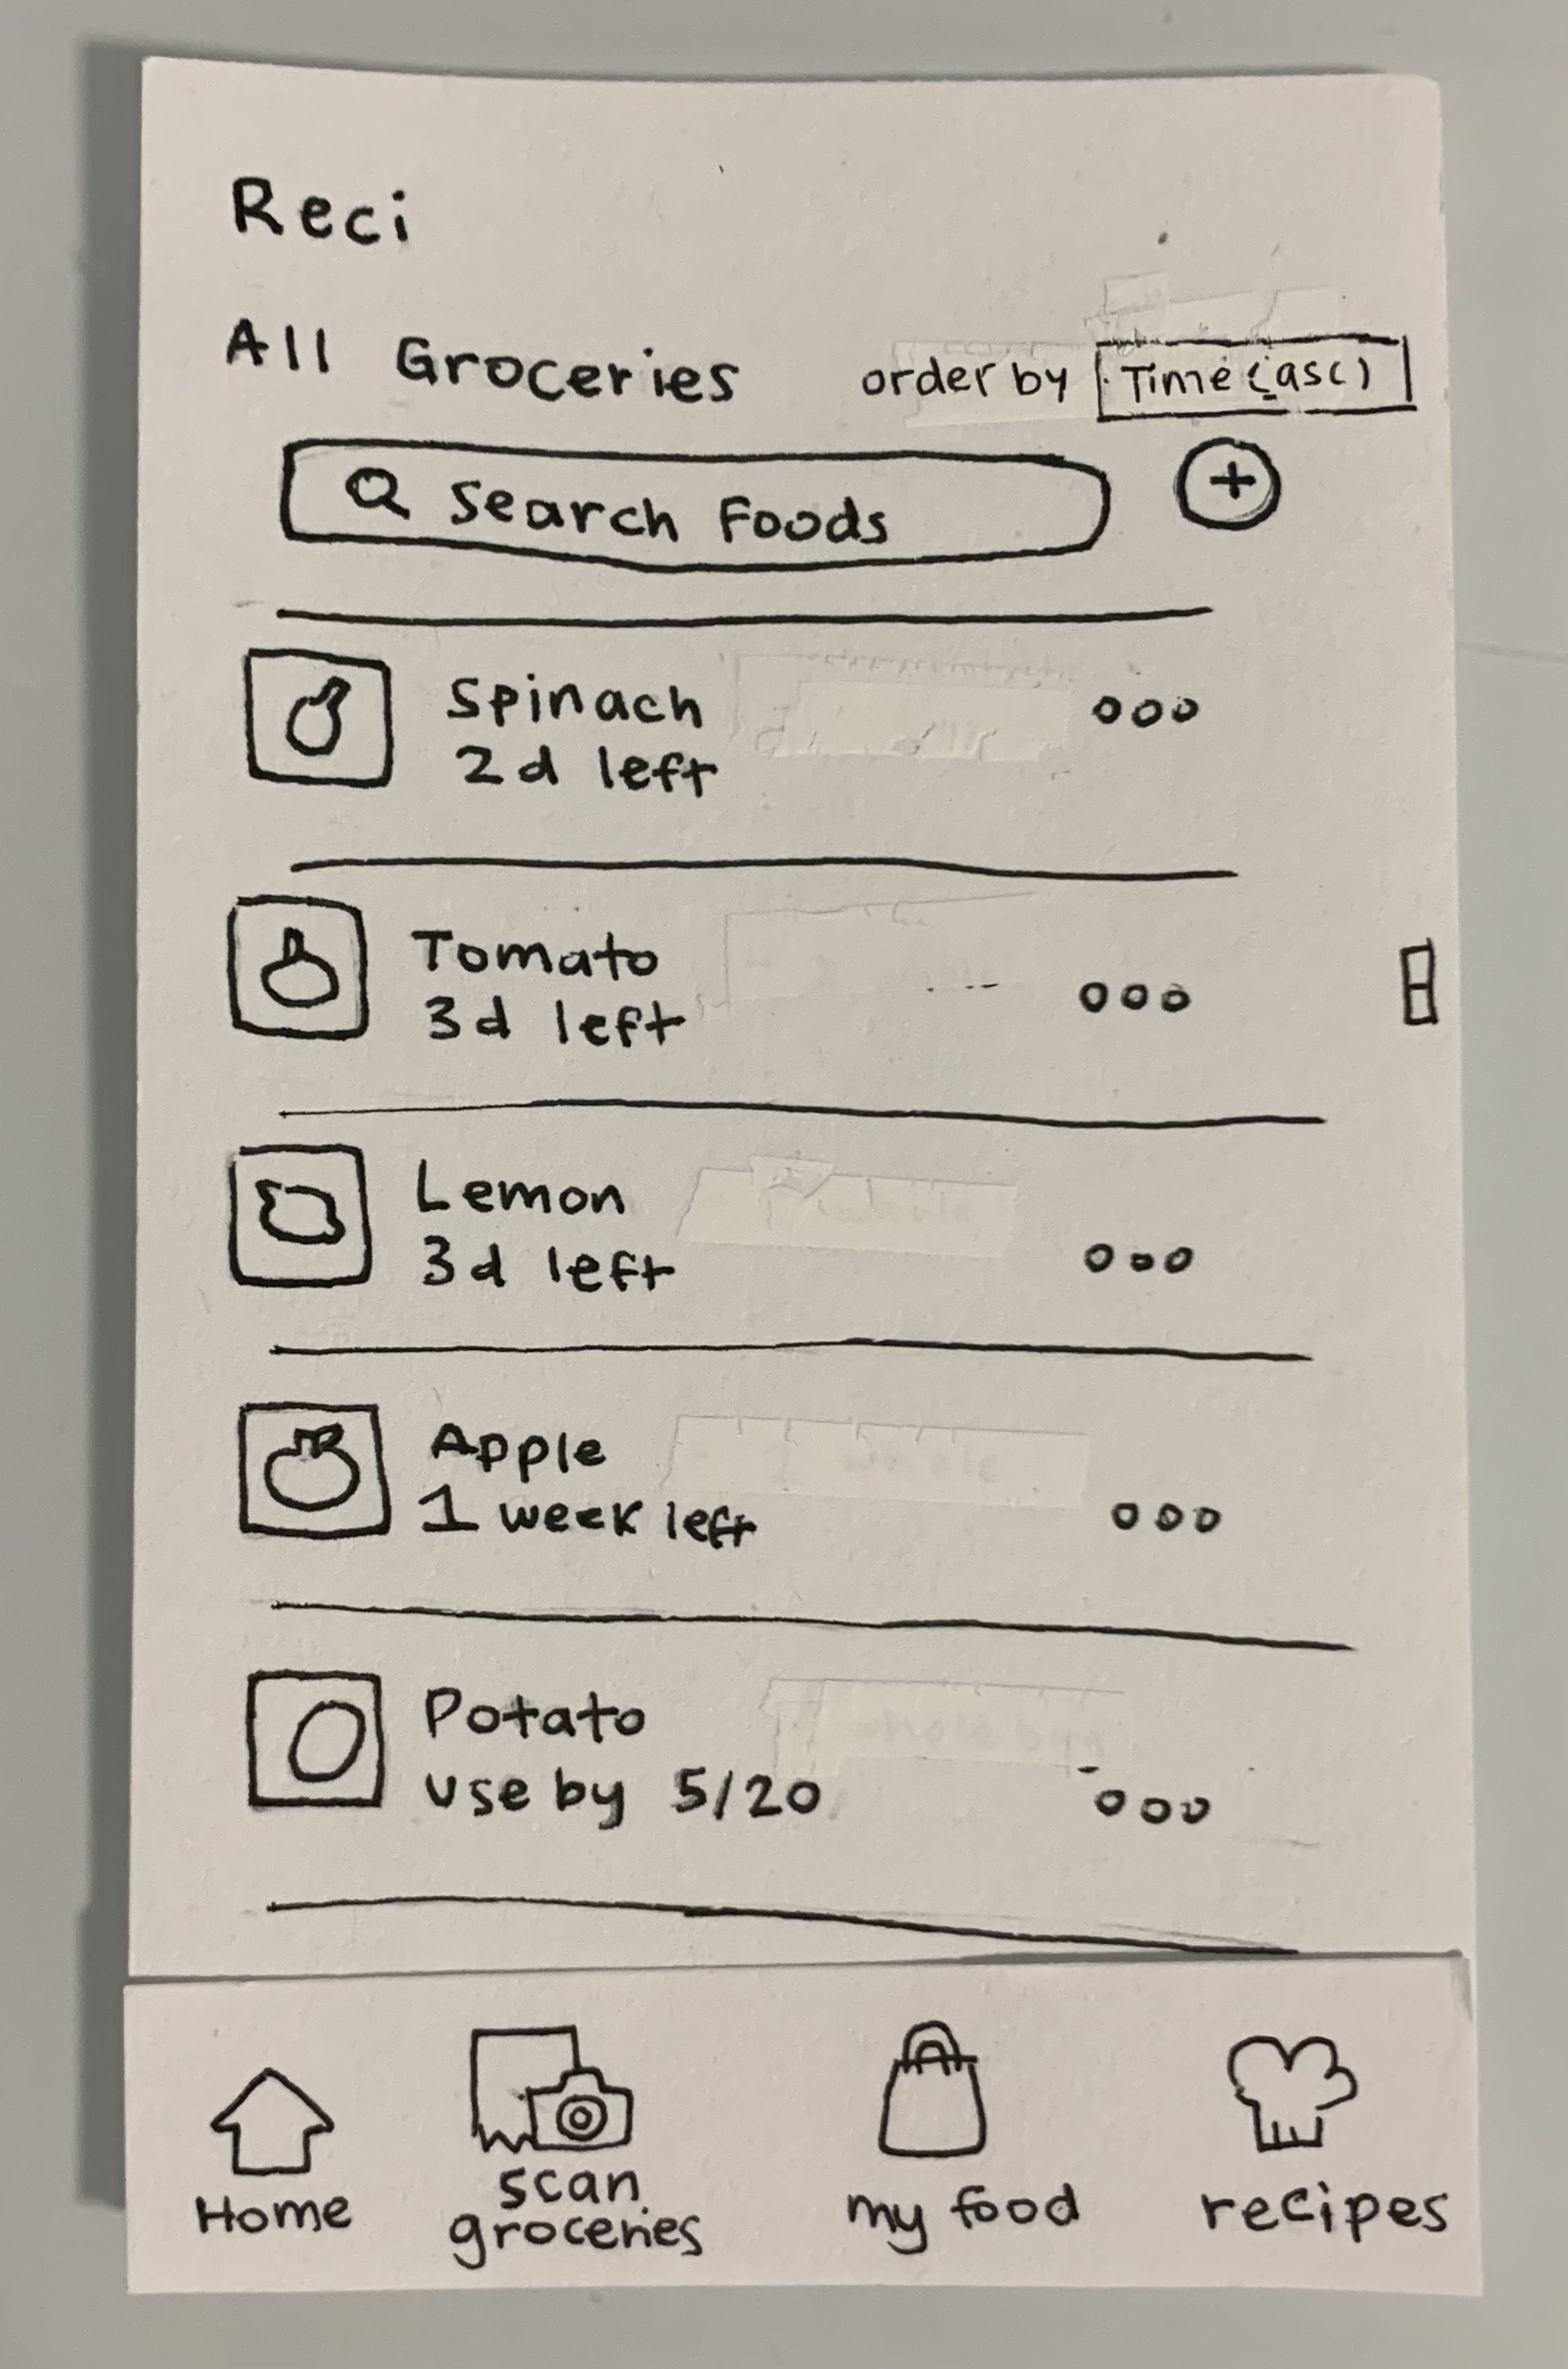 Reci
All Groceries
order by Time (asc)
Search Foods
Spinach
2d left
Tomato
3d left
Lemon
3d left
Apple
1 week left
Potato
use by 5/20
Home
scan
groceries
my food
recipes